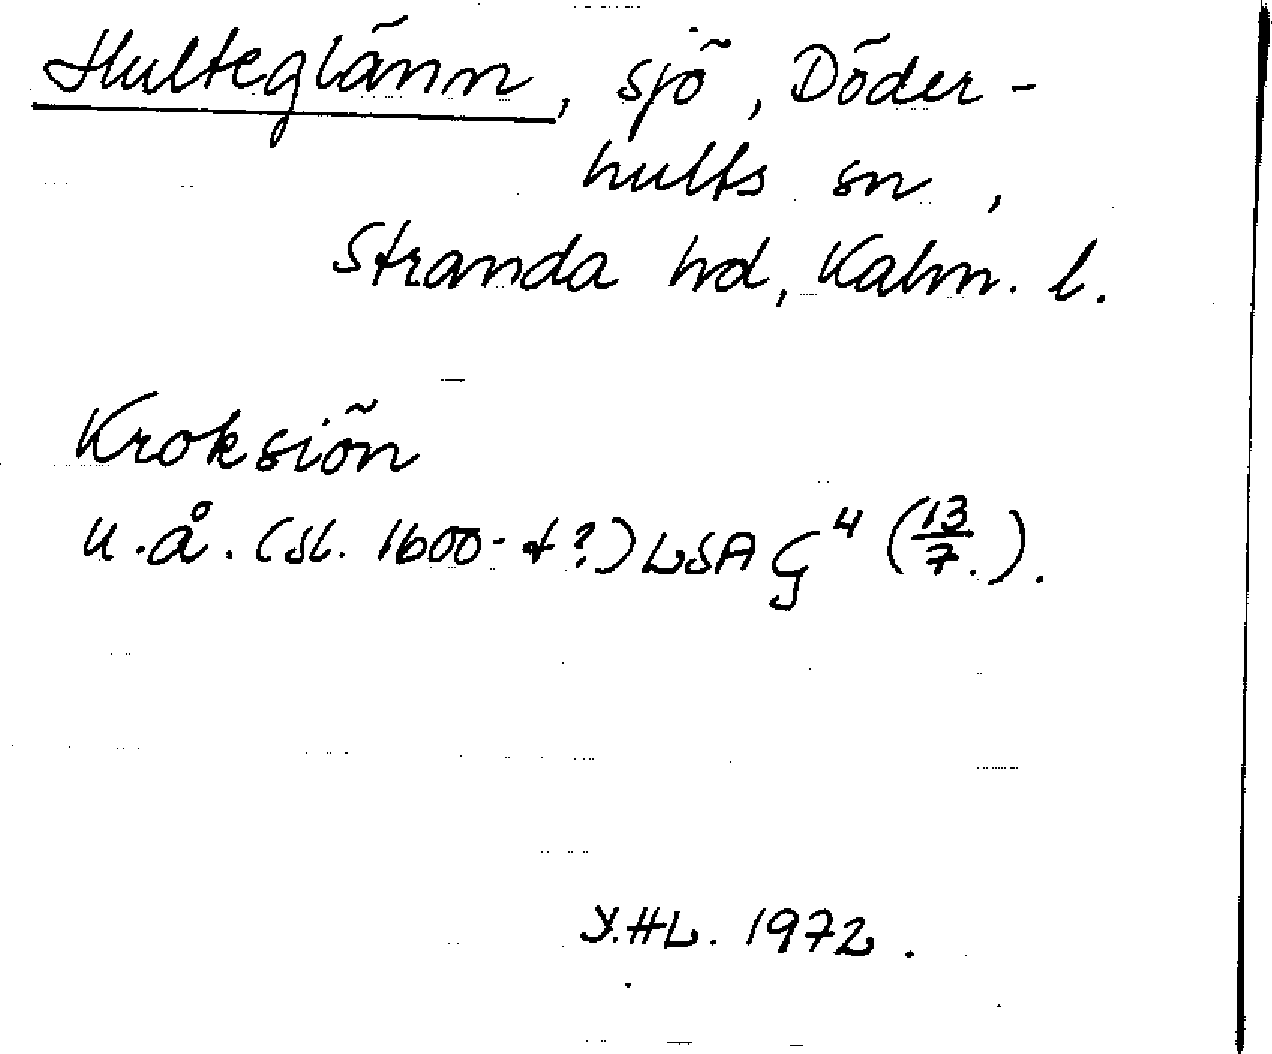 Hulteglänn, sjö, Döder-
hults sn,
Stranda hd, Kalm. l.
Kroksiön
u.å. (sl. 1600-t?) LSA G⁴ (13/7.).
Y.HL. 1972.